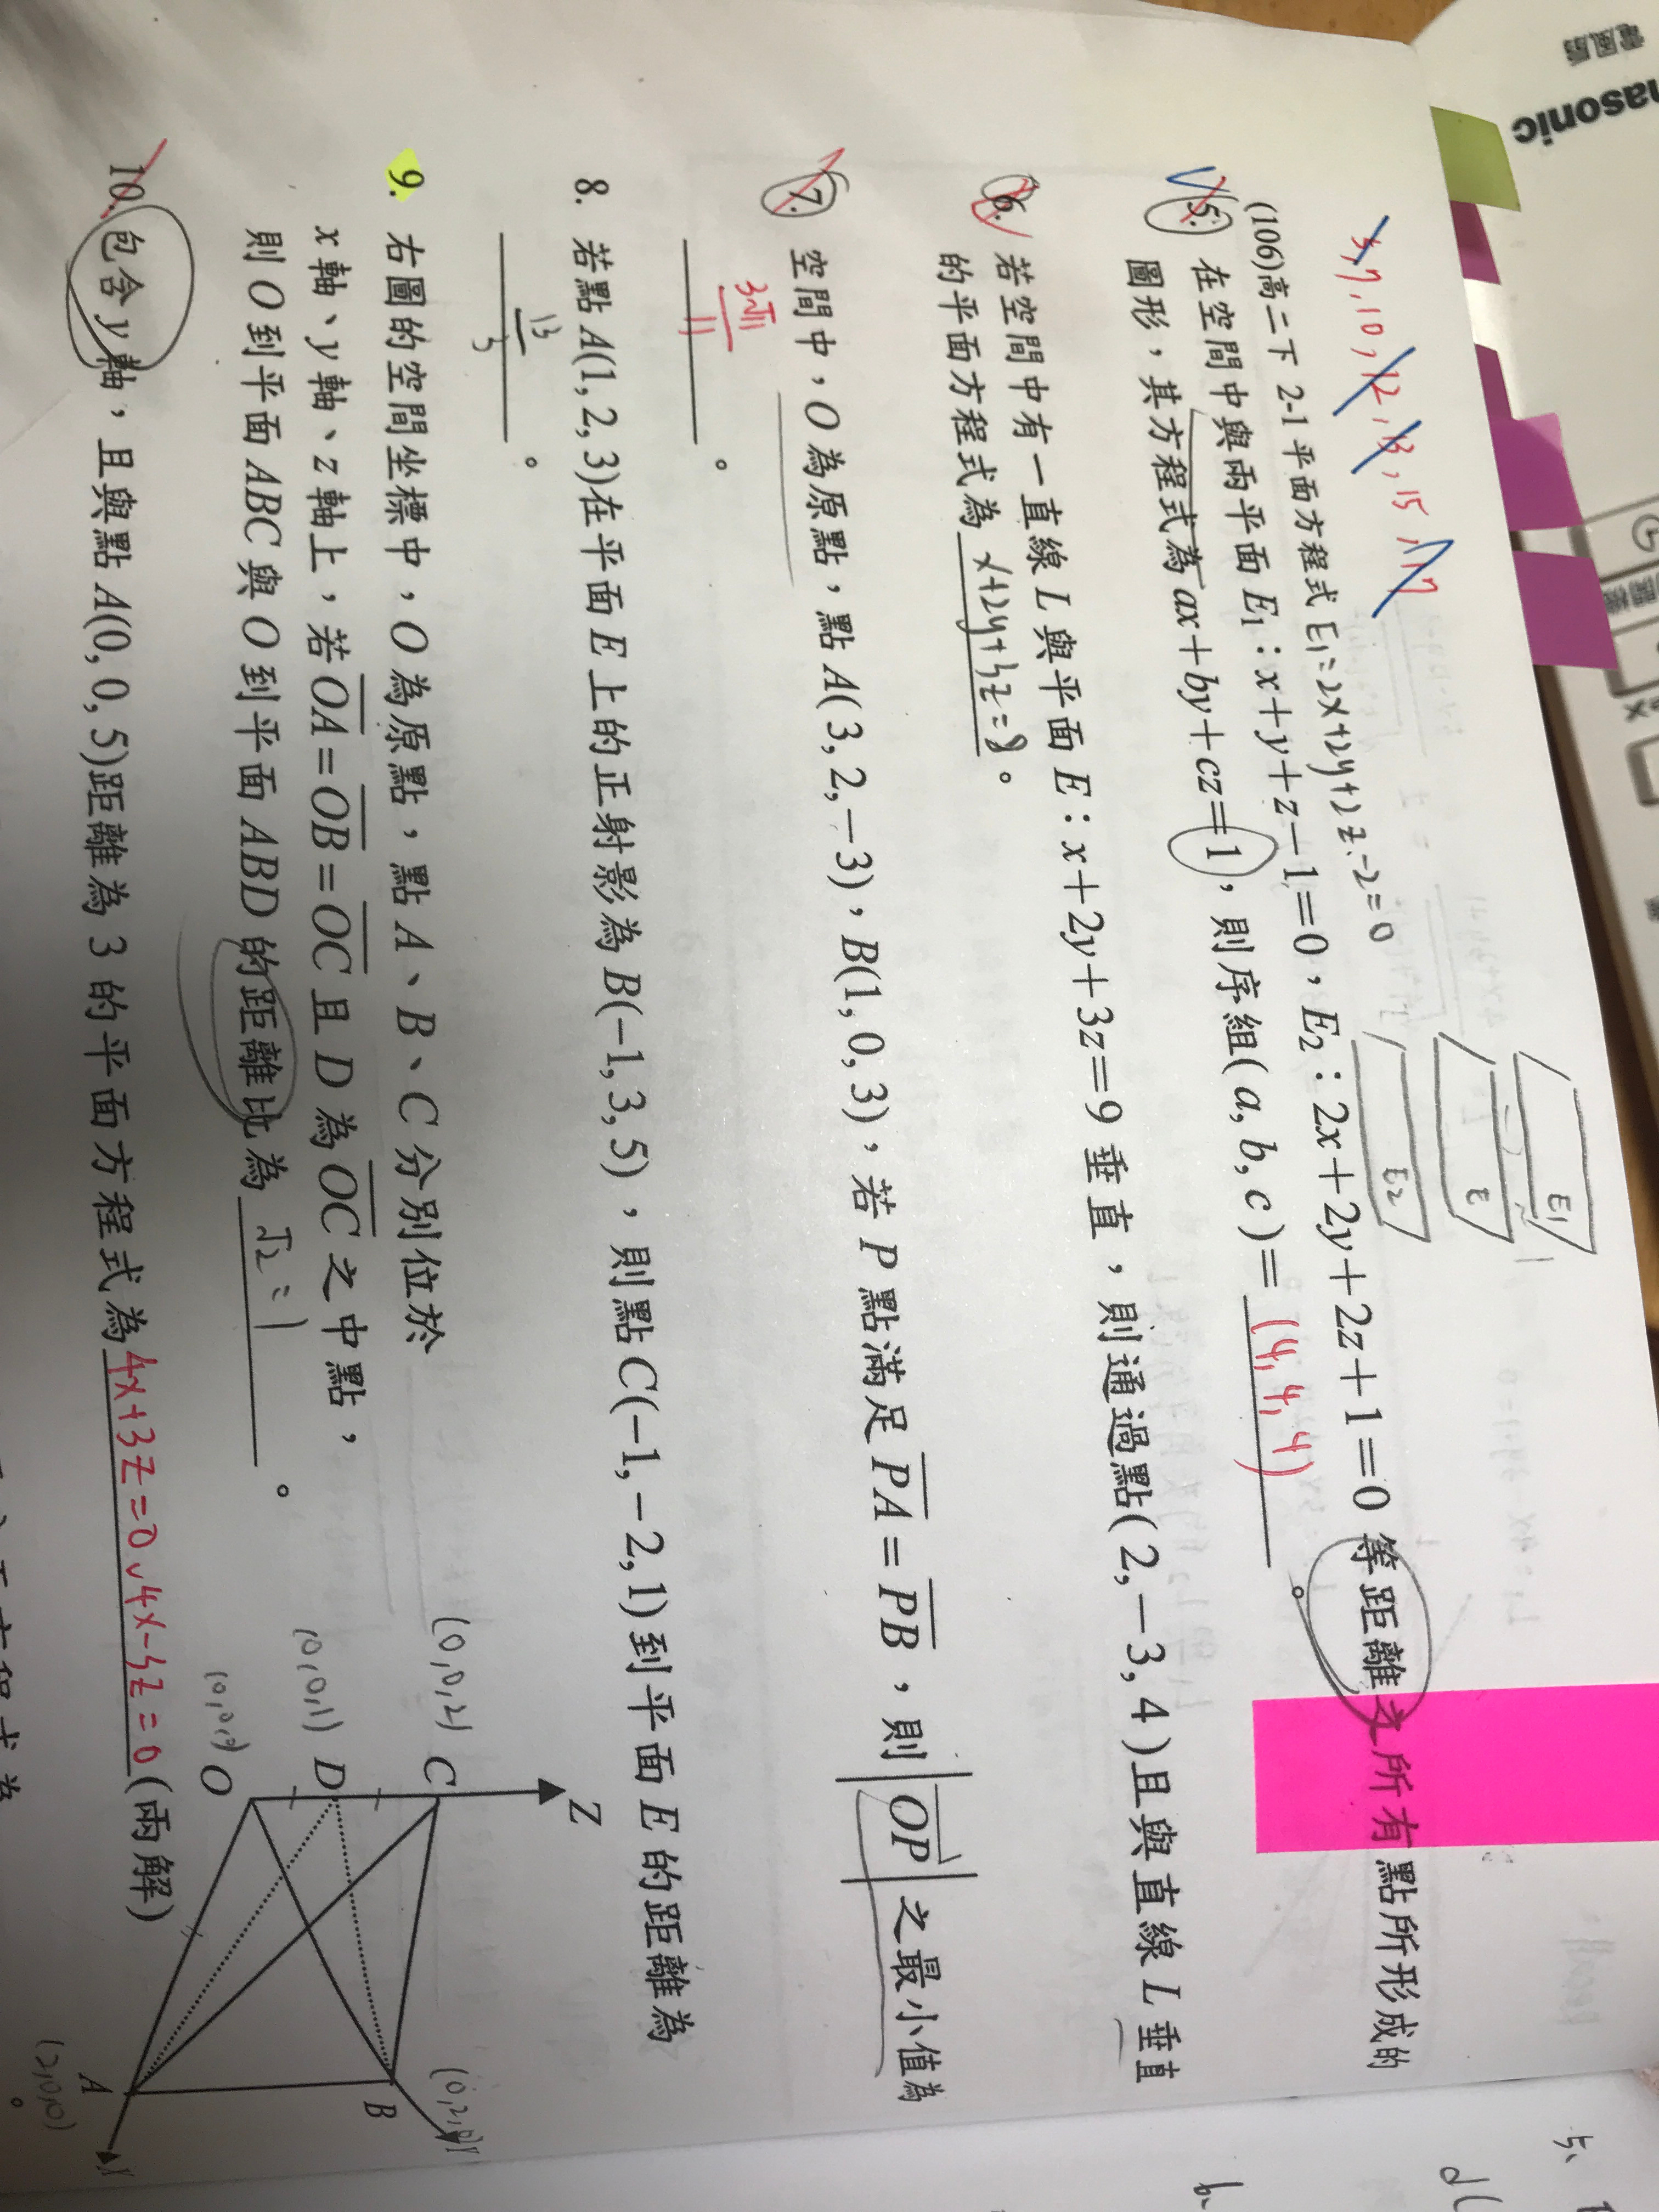 Panasonic
3, 7, 10, 12, 13, 15, 17
(106)高二下 2-1 平面方程式 E₁:2x+2y+2z-2=0
5. 在空間中與兩平面 E₁:x+y+z−1=0,E₂:2x+2y+2z+1=0 等距離之所有點所形成的
圖形,其方程式為 ax+by+cz=1,則序組(a, b, c)= (4, 4, 4) 。
E₁
E
E₂
6. 若空間中有一直線 L 與平面 E:x+2y+3z=9 垂直,則通過點(2,−3,4)且與直線 L 垂直
的平面方程式為 x+2y+3z=8 。
7. 空間中,O 為原點,點 A(3, 2,−3),B(1, 0, 3),若 P 點滿足 PA=PB,則|OP|之最小值為
3√11/11 。
8. 若點 A(1, 2, 3)在平面 E 上的正射影為 B(−1, 3, 5),則點 C(−1,−2, 1)到平面 E 的距離為
13/3 。
9. 右圖的空間坐標中,O 為原點,點 A、B、C 分別位於
x 軸、y 軸、z 軸上,若 OA=OB=OC 且 D 為 OC 之中點,
則 O 到平面 ABC 與 O 到平面 ABD 的距離比為 √2:1 。
Z
C
(0,0,2)
D
(0,0,1)
O
(0,0,0)
B
(0,2,0)
A
(2,0,0)
10. 包含 y 軸,且與點 A(0, 0, 5)距離為 3 的平面方程式為 4x+3z=0,4x-3z=0 (兩解)
。
5、
d(
6、